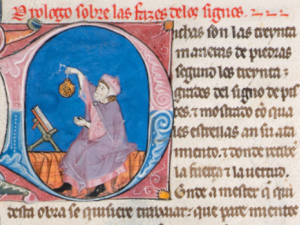 Prologo sobre las fazes delos signos.
Dichas son las treynta
maneras de piedras
segund los treynta
grados del signo de pis
ces. τ mostrado es qua
les estrellas an su ata
miento. τ donde recibe
la fuerça τ la uertud.
Onde a mester q̃ qui
desta obra se quisiere trabaiar. que pare mientes